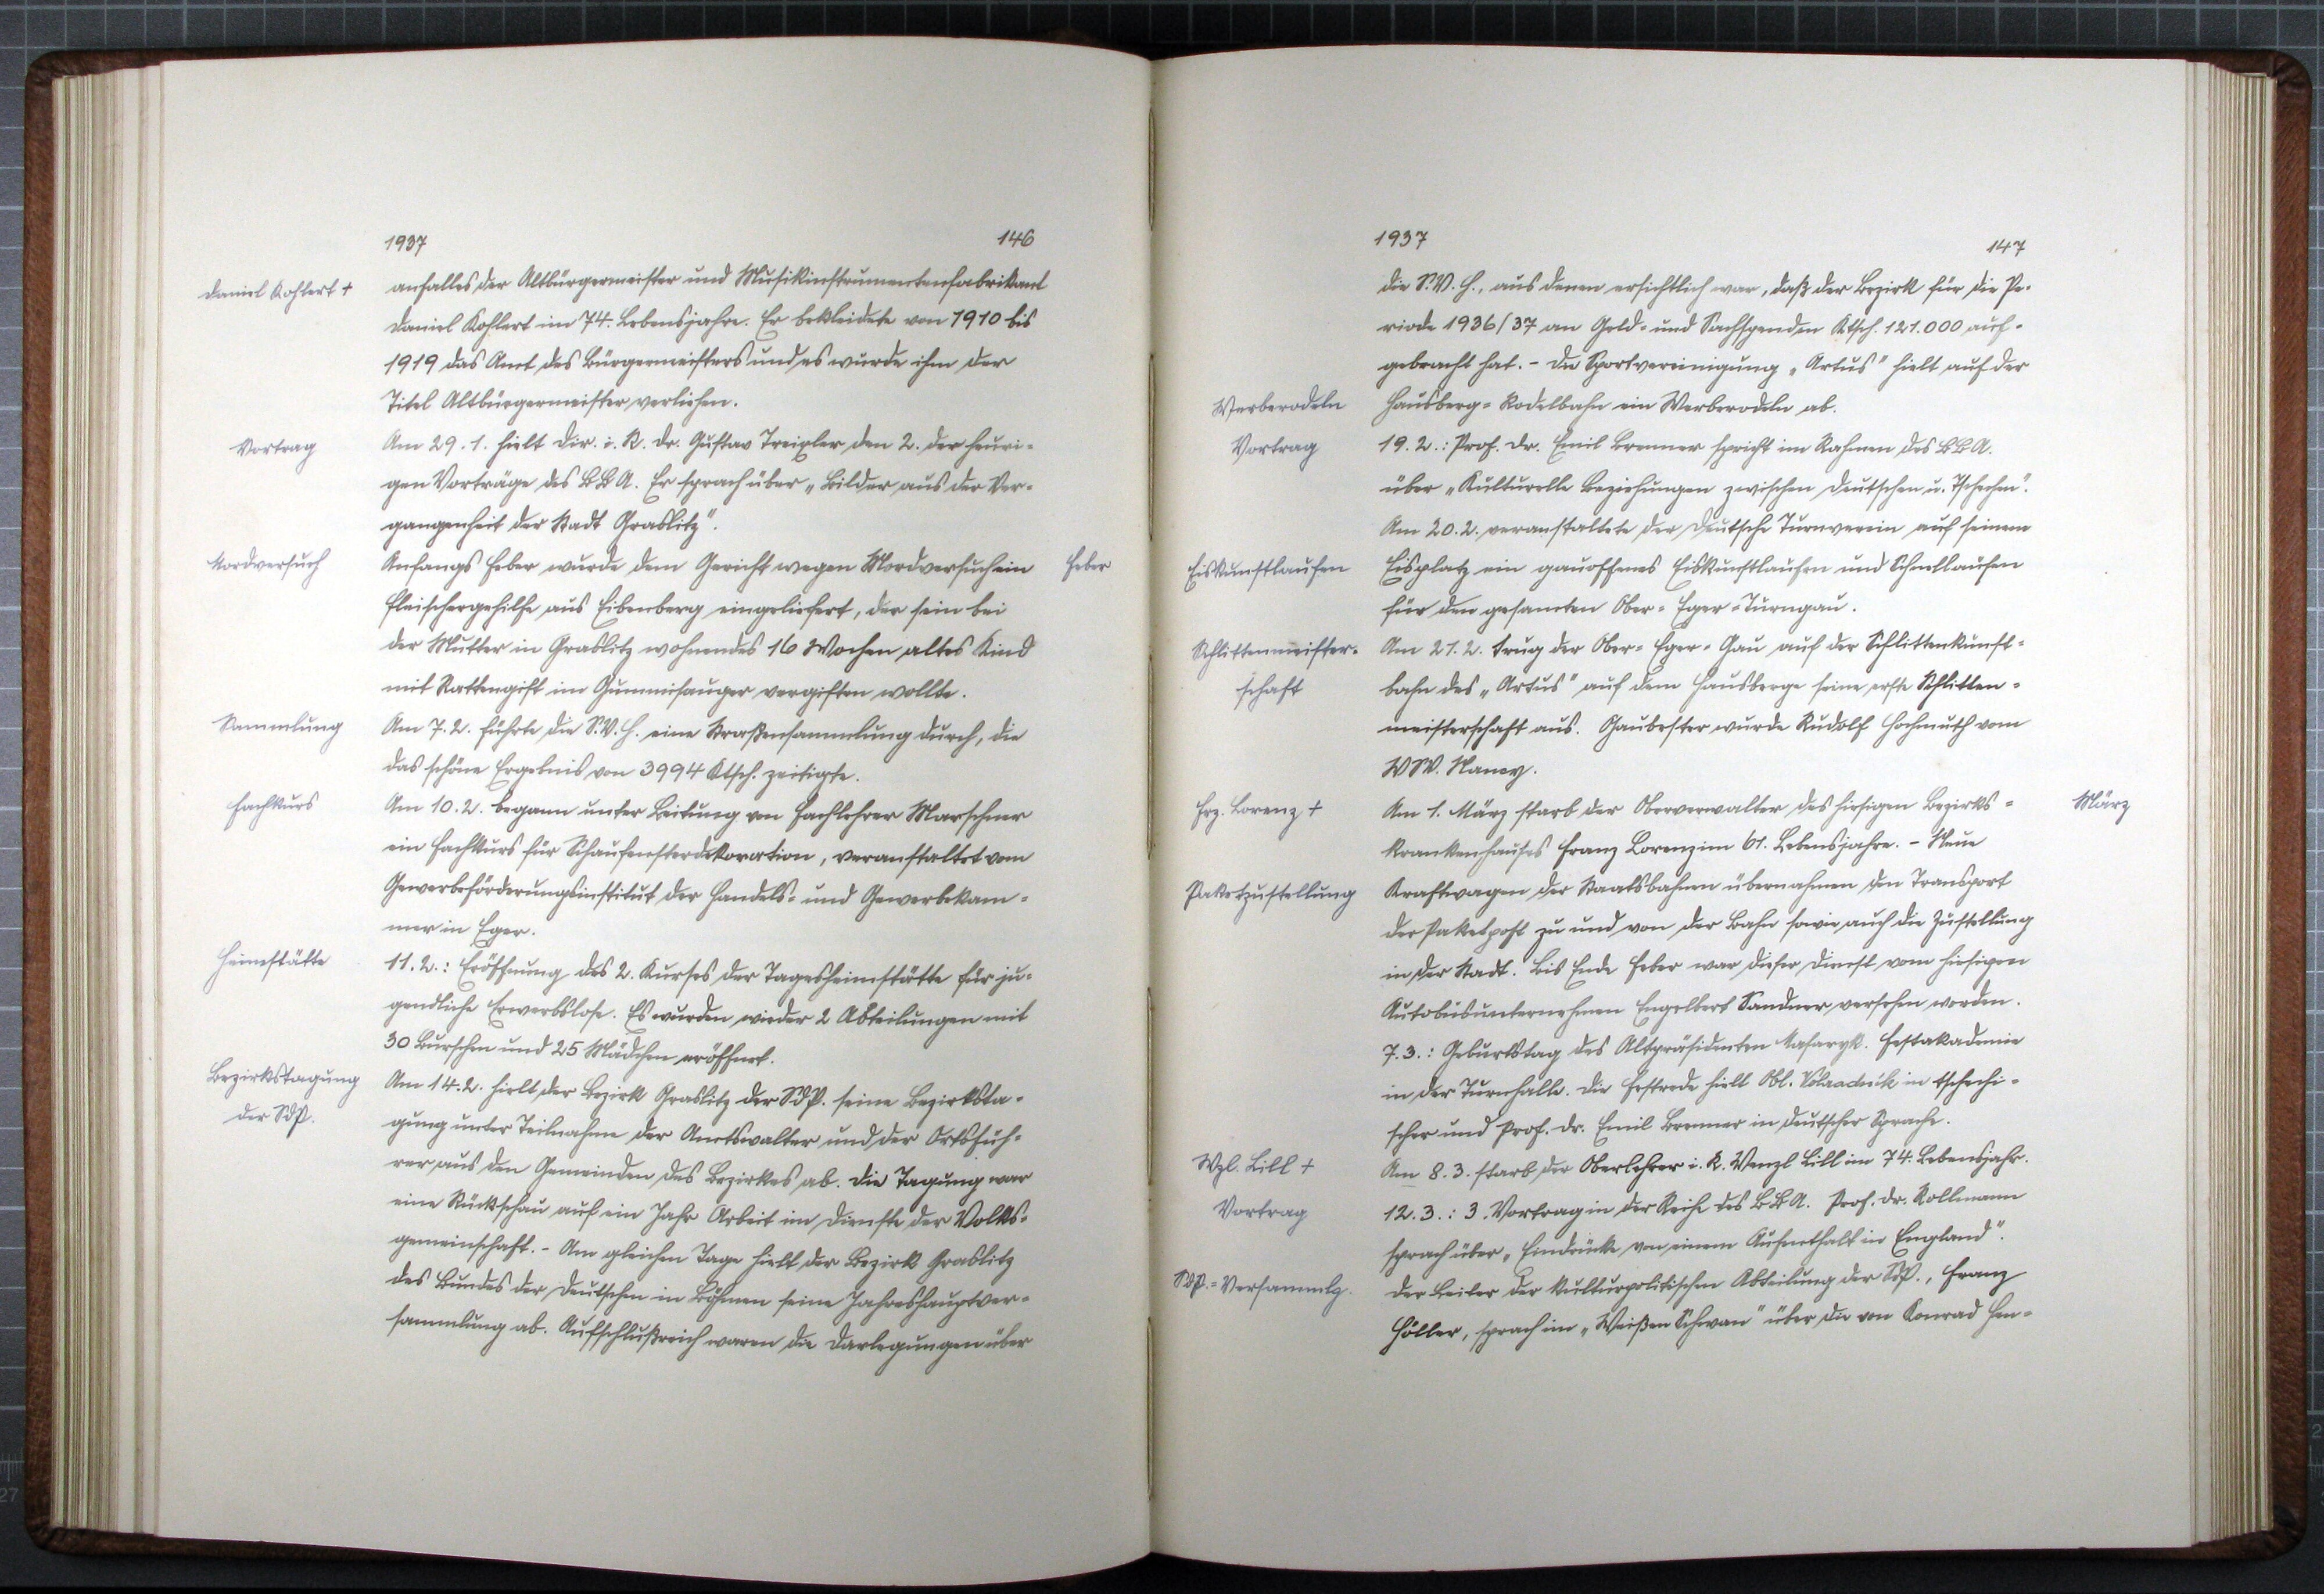 1937
146
Daniel Kohlert †
anfalles der Altbürgermeister und Musikinstrumentenfabrikant
Daniel Kohlert im 74. Lebensjahre. Er bekleidete von 1910 bis
1919 das Amt des Bürgermeisters und es wurde ihm der
Titel Altbürgermeister verliehen.
Vortrag
Am 29. 1. hielt Dir. i. R. Dr. Gustav Treixler den 2. der heuri-
gen Vorträge des BBA. Er sprach über „Bilder aus der Ver-
gangenheit der Stadt Graslitz".
Mordversuch
Anfangs Feber wurde dem Gericht wegen Mordversuch ein
Feber
Fleischergehilfe aus Eibenberg eingeliefert, der sein bei
der Mutter in Graslitz wohnendes 16 Wochen altes Kind
mit Rattengift im Gummisauger vergiften wollte.
Sammlung
Am 7. 2. führte die S.V.H. eine Straßensammlung durch, die
das schöne Ergebnis von 3994 Ktsch. zeitigte.
Fachkurs
Am 10. 2. begann unter Leitung von Fachlehrer Marschner
ein Fachkurs für Schaufensterdekoration, veranstaltet vom
Gewerbeförderungsinstitut der Handels- und Gewerbekam-
mer in Eger.
Heimstätte
11. 2.: Eröffnung des 2. Kurses der Tagesheimstätte für ju-
gendliche Erwerbslose. Es wurden wieder 2 Abteilungen mit
30 Burschen und 25 Mädchen eröffnet.
Bezirkstagung
der SdP.
Am 14. 2. hielt der Bezirk Graslitz der SdP. seine Bezirksta-
gung unter Teilnahme der Amtswalter und der Ortsfüh-
rer aus den Gemeinden des Bezirkes ab. Die Tagung war
eine Rückschau auf ein Jahr Arbeit im Dienste der Volks-
gemeinschaft. - Am gleichen Tage hielt der Bezirk Graslitz
des Bundes der Deutschen in Böhmen seine Jahreshauptver-
sammlung ab. Aufschlußreich waren die Darlegungen über
1937
147
die S.V.H., aus denen ersichtlich war, daß der Bezirk für die Pe-
riode 1936/37 an Geld- und Sachspenden Ktsch. 121.000 auf-
gebracht hat. - Die Sportvereinigung „Artus" hielt auf der
Werberodeln
Hausberg-Rodelbahn ein Werberodeln ab.
Vortrag
19. 2.: Prof. Dr. Emil Brenner spricht im Rahmen des BBA.
über „Kulturelle Beziehungen zwischen Deutschen u. Tschechen".
Am 20. 2. veranstaltete der Deutsche Turnverein auf seinem
Eiskunstlaufen
Eisplatz ein gauoffenes Eiskunstlaufen und Schnellaufen
für den gesamten Ober-Eger-Turngau.
Schlittenmeister-
schaft
Am 21. 2. trug der Ober-Eger-Gau auf der Schlittenkunst-
bahn des „Artus" auf dem Hausberge seine erste Schlitten-
meisterschaft aus. Gaubester wurde Rudolf Hochmuth vom
WSV. Nancy.
Frz. Lorenz †
Am 1. März starb der Oberverwalter des hiesigen Bezirks-
März
krankenhauses Franz Lorenz im 61. Lebensjahre. - Neue
Paketzustellung
Kraftwagen der Staatsbahnen übernahmen den Transport
der Paketpost zu und von der Bahn sowie auch die Zustellung
in der Stadt. Bis Ende Feber war dieser Dienst vom hiesigen
Autobusunternehmen Engelbert Sandner versehen worden.
7. 3.: Geburtstag des Altpräsidenten Masaryk. Festakademie
in der Turnhalle. Die Festrede hielt Obl. in tschechi-
scher und Prof. Dr. Emil Brenner in deutscher Sprache.
Wzl. Lill †
Am 8. 3. starb der Oberlehrer i. R. Wenzl Lill im 74. Lebensjahr.
Vortrag
12. 3.: 3. Vortrag in der Reihe des BBA. Prof. Dr. Kollmann
sprach über „Eindrücke von einem Aufenthalt in England".
SdP.-Versammlg.
Der Leiter der kulturpolitischen Abteilung der SdP., Franz
Höller, sprach im „Weißen Schwan" über die von Konrad Hen-